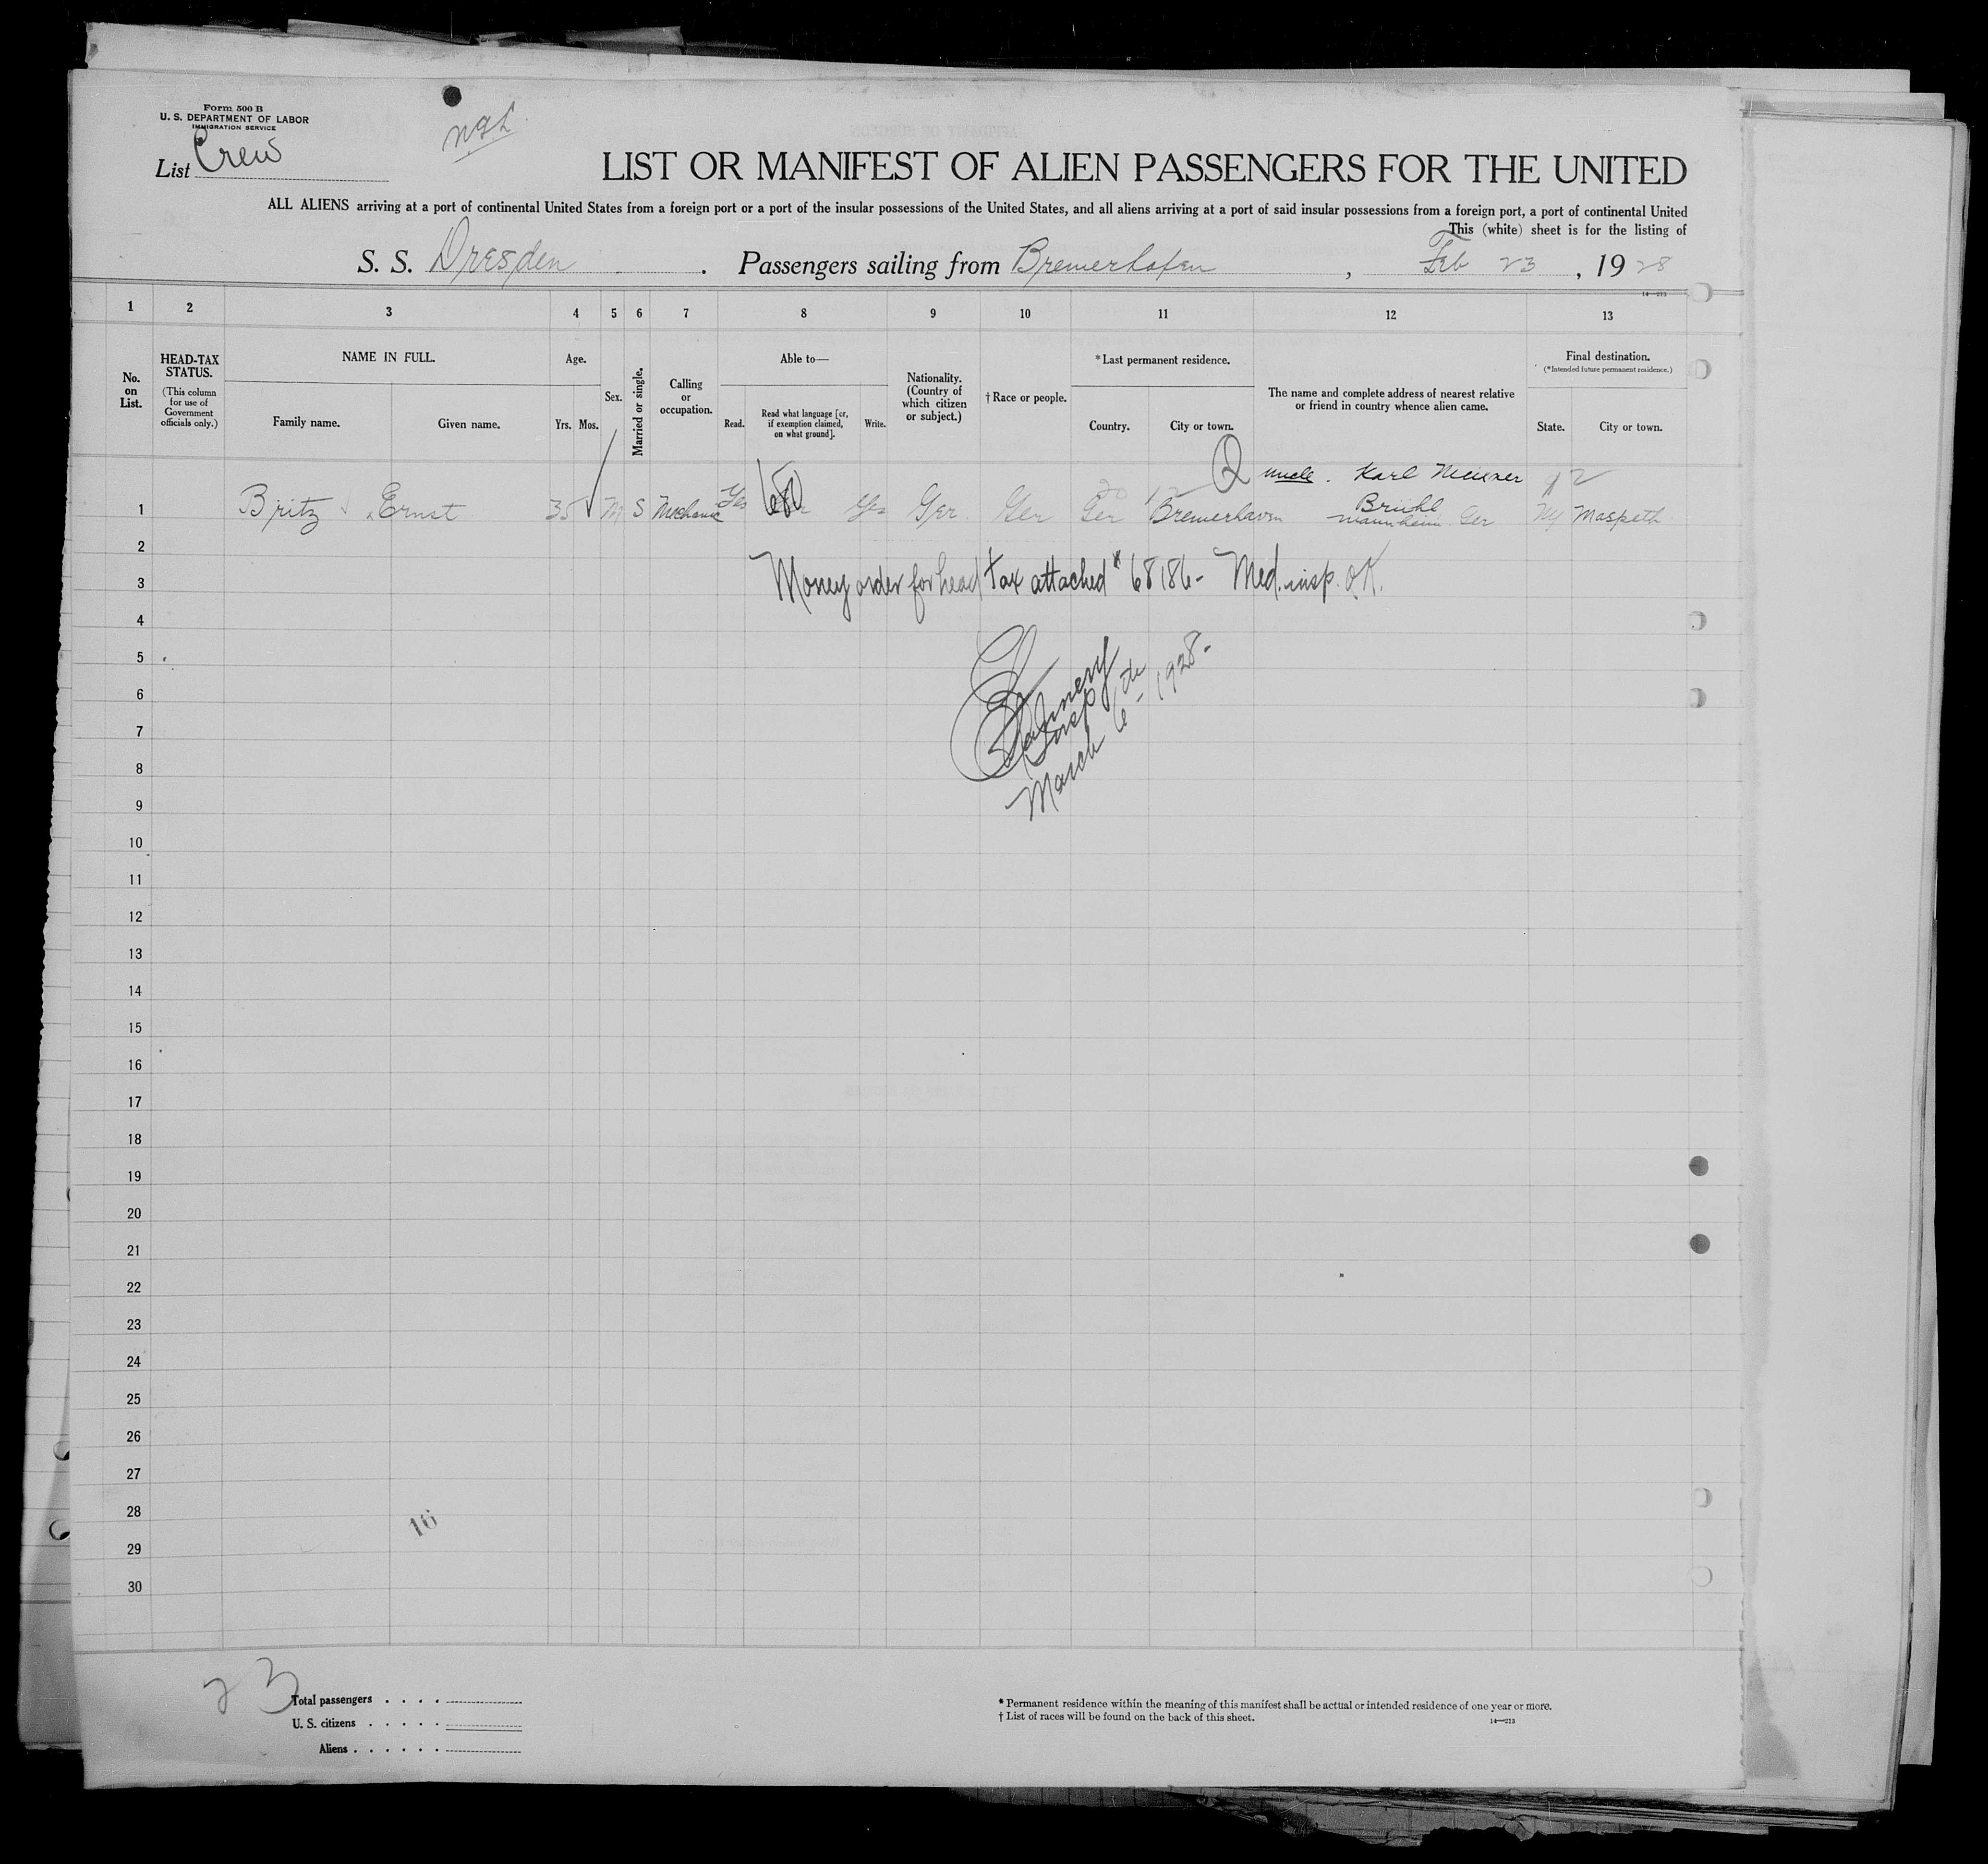 Form 500 B
U. S. DEPARTMENT OF LABOR
IMMIGRATION SERVICE
List Crew
LIST OR MANIFEST OF ALIEN PASSENGERS FOR THE UNITED
ALL ALIENS arriving at a port of continental United States from a foreign port or a port of the insular possessions of the United States, and all aliens arriving at a port of said insular possessions from a foreign port, a port of continental United
This (white) sheet is for the listing of
S. S. Dresden . Passengers sailing from Bremerhafen , Feb 23 , 1928
14—213
1 2 3 4 5 6 7 8 9 10 11 12 13
No. on List.
HEAD-TAX STATUS.
(This column for use of Government officials only.)
NAME IN FULL.
Family name.
Given name.
Age.
Yrs. Mos.
Sex.
Married or single.
Calling or occupation.
Able to—
Read.
Read what language [or, if exemption claimed, on what ground].
Write.
Nationality. (Country of which citizen or subject.)
†Race or people.
*Last permanent residence.
Country.
City or town.
The name and complete address of nearest relative or friend in country whence alien came.
Final destination.
(*Intended future permanent residence.)
State.
City or town.
uncle. Karl Meisner
1 Britz Ernst 35 M S Mechanic Yes Yes Ger Ger Ger Bremerhaven Brühl Mannheim Ger NY Maspeth
2
Money order for head tax attached # 68186 - Med. insp. O.K.
3
4
5
6
7
Insp
March 6th 1928 -
8
9
10
11
12
13
14
15
16
17
18
19
20
21
22
23
24
25
26
27
28
16
29
30
23
Total passengers . . . .
U. S. citizens . . . . .
Aliens . . . . . .
* Permanent residence within the meaning of this manifest shall be actual or intended residence of one year or more.
† List of races will be found on the back of this sheet.
14—213